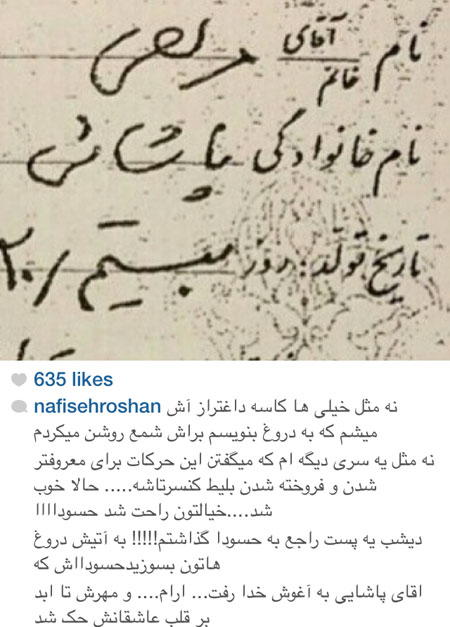 نام آقای خانم مرتضی
نام خانوادگی پاشائی
تاریخ تولد: روز بیستم / ۲۰
635 likes
nafisehroshan نه مثل خیلی ها کاسه داغتراز آش
میشم که به دروغ بنویسم براش شمع روشن میکردم
نه مثل یه سری دیگه ام که میگفتن این حرکات برای معروفتر
شدن و فروخته شدن بلیط کنسرتاشه..... حالا خوب
شد....خیالتون راحت شد حسوداااا
دیشب یه پست راجع به حسودا گذاشتم!!!!! به آتیش دروغ
هاتون بسوزیدحسودااش که
اقای پاشایی به آغوش خدا رفت... ارام.... و مهرش تا ابد
بر قلب عاشقانش حک شد